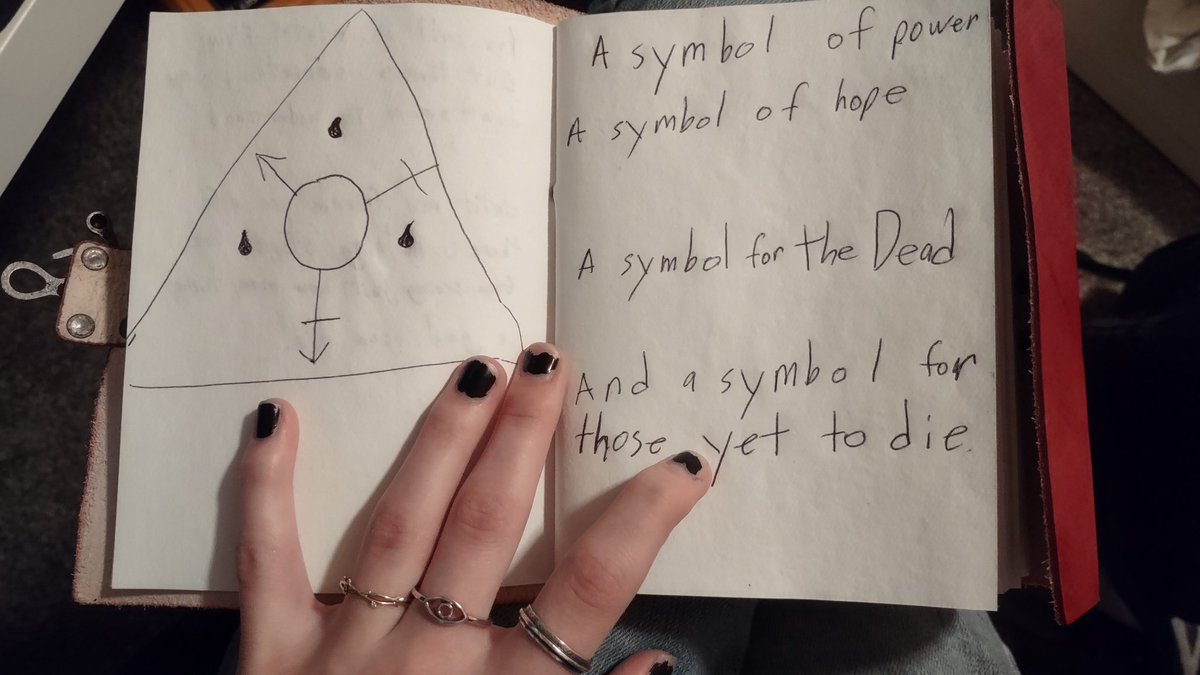 A symbol of power
A symbol of hope
A symbol for the Dead
And a symbol for
those yet to die.